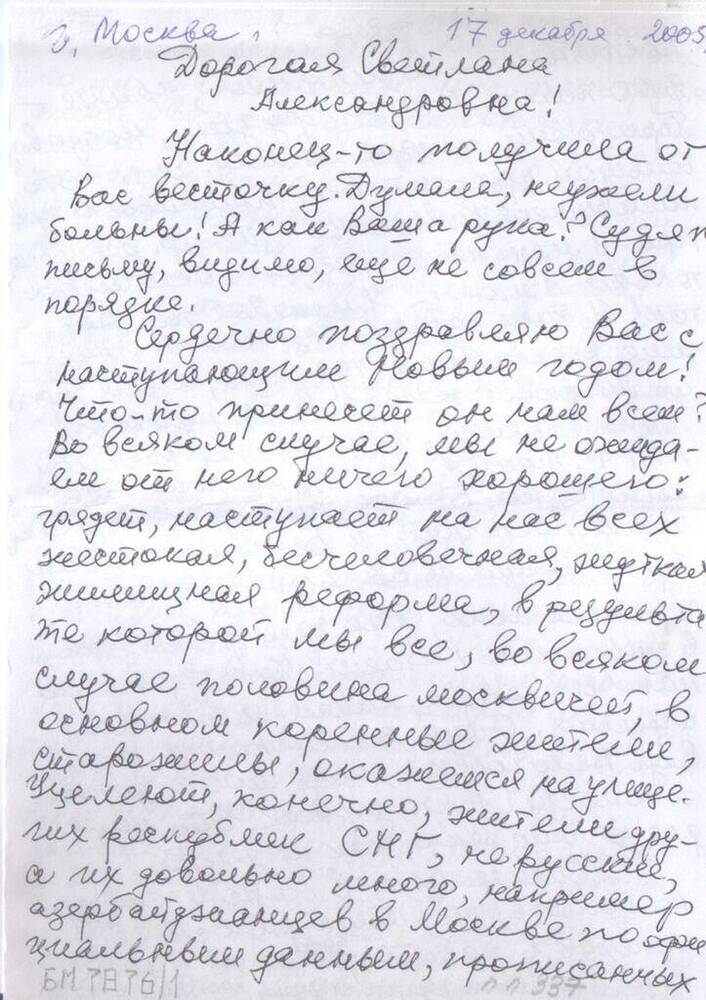 г. Москва. 17 декабря 2005
Дорогая Светлана
Александровна!
Наконец-то получила от
Вас весточку. Думала, неужели
больны! А как Ваша рука? Судя п
письму, видимо, ещё не совсем в
порядке.
Сердечно поздравляю Вас с
наступающим Новым годом!
Что-то принесет он нам всем?
Во всяком случае, мы не ожида-
ем от него ничего хорошего:
грядет, наступает на нас всех
жестокая, бесчеловечная, жуткая
жилищная реформа, в результа
те которой мы все, во всяком
случае половина москвичей, в
основном коренные жители,
старожилы, окажемся на улице.
Уцелеют, конечно, жители дру-
гих республик СНГ, не русские,
а их довольно много, например
азербайджанцев в Москве по офи
циальным данным, прописанных
БМ 7876/1 л.1.337